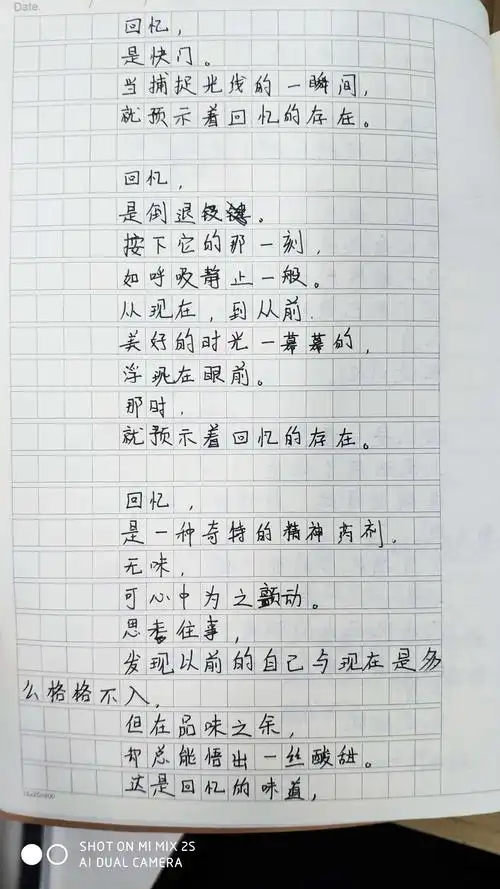 Date.
回忆，
是快门。
当捕捉光线的一瞬间，
就预示着回忆的存在。
回忆，
是倒退键。
按下它的那一刻，
如呼吸静止一般。
从现在，到从前.
美好的时光一幕幕的，
浮现在眼前。
那时，
就预示着回忆的存在。
回忆，
是一种奇特的精神药剂.
无味，
可心中为之颤动。
思考往事，
发现以前的自己与现在是多
么格格不入，
但在品味之余，
却总能悟出一丝酸甜。
这是回忆的味道，
SHOT ON MI MIX 2S
AI DUAL CAMERA